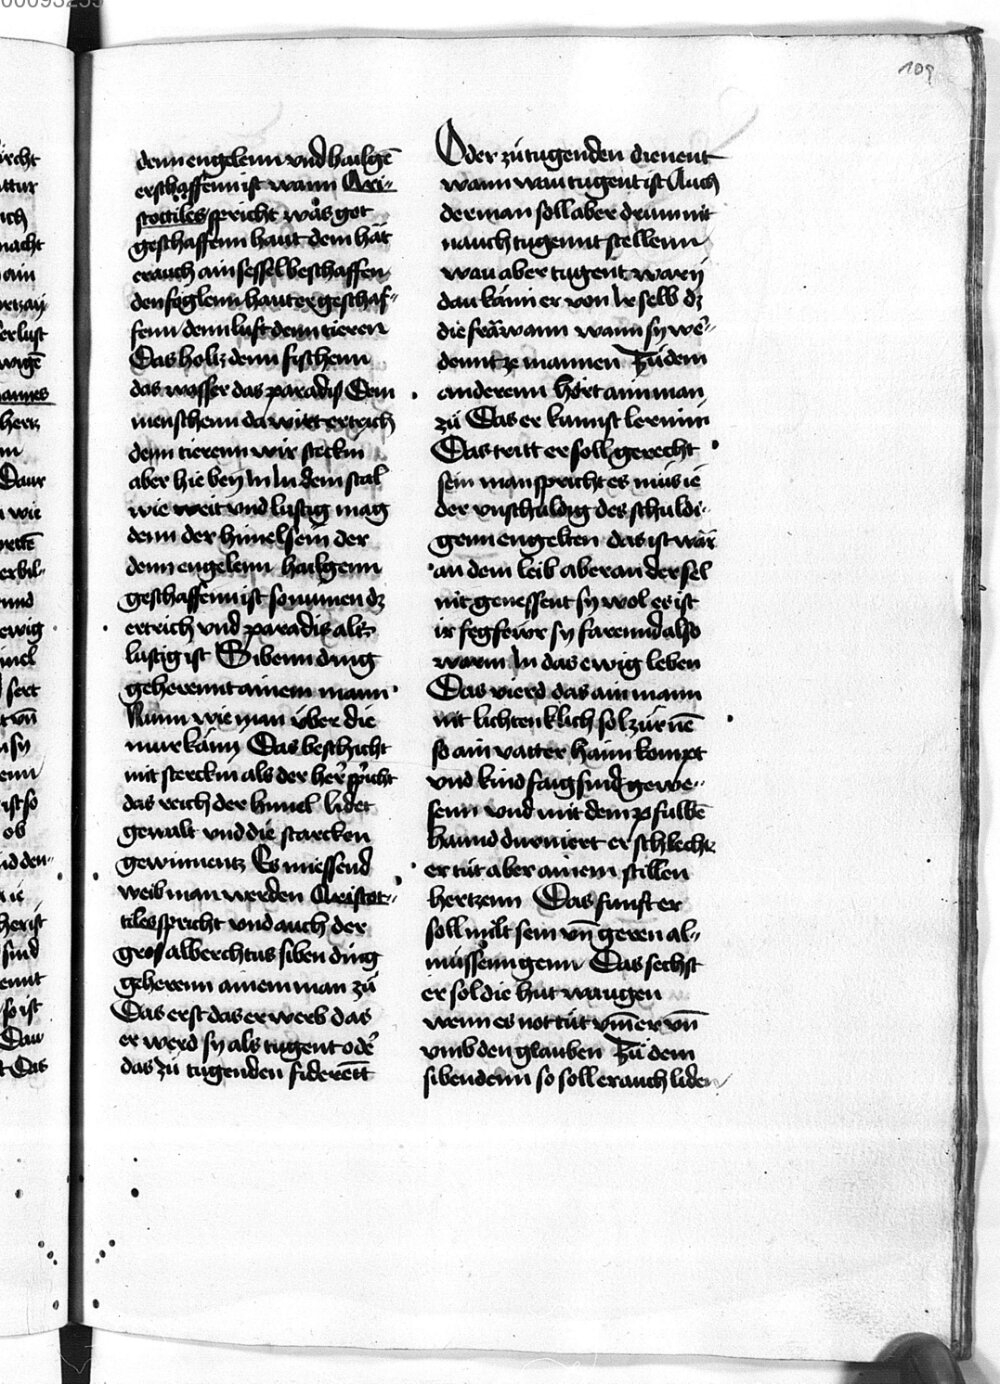 109
denn engelenn vnd hailgē
erschaffenn ist wann Ari-
stottiles spricht was got
geschaffenn haut dem hāt
er auch ain sessel beschaffen
den foglenn haut er geschaf-
fenn denn luft denn tieren
Das holtz denn fischenn
das wasser das paradis Dem
menschenn da wirt ertrich
denn tierenn wir steckin
aber hie beÿ In In dem stal
wie weit vnd lustig mag
denn der himel sein der
denn engelenn hailgenn
geschaffenn ist so nu men dz
ertrich vnd paradis als
lustig ist Sibenn ding
geherennt ainem mann
Nūnn wie man über die
mur kāmÿ Das beschicht
mit sterckin als der her spricht
das reich der himel lidet
gewalt vnd die starcken
gewinnentz Es miessend
weib man werden Aristot-
tiles spricht vnd auch der
gros alberchtus siben ding
geherenn ainem man zů
Das erst das er werb das
er werd sÿ als tugent odē
das zů tugenden fiderentt
Oder zů tugenden dienent
wann wau tugent ist Auch
der man soll aber drum nit
nauch tugennt stellenn
wau aber tugent warÿ
dau kāmi er von Ir selb dz
die frāw ann wann sÿ we-
dennt ze mannen Zů dem
anderenn hört aim man
zů Das er kunst lernnn
Das tritt er soll gerecht
sein man spricht es mūs ie
der vnschuldig des schuldi-
genn engelten das ist wār
an dem leib aber an der sel
nit genessent sÿ wol es ist
ir fegfewr sÿ farennd also
warm In das ewig leben
Das vierd das ain mann
nit lichtenklich sol zürnē
so ain vatter haim kompt
vnd kind faig sind gewe-
senn vnd mit dem pfulbē
hannd durniert er schlechtz
er tůt aber ainem stillen
hertzenn Das funft er
soll milt sein vn̄ geren al-
mūssenn genn Das sechst
er sol die hut waugen
wenn es not tůt vm̄ er vn̄
vmb den glauben Zů dem
sibendenn so soll er auch liden